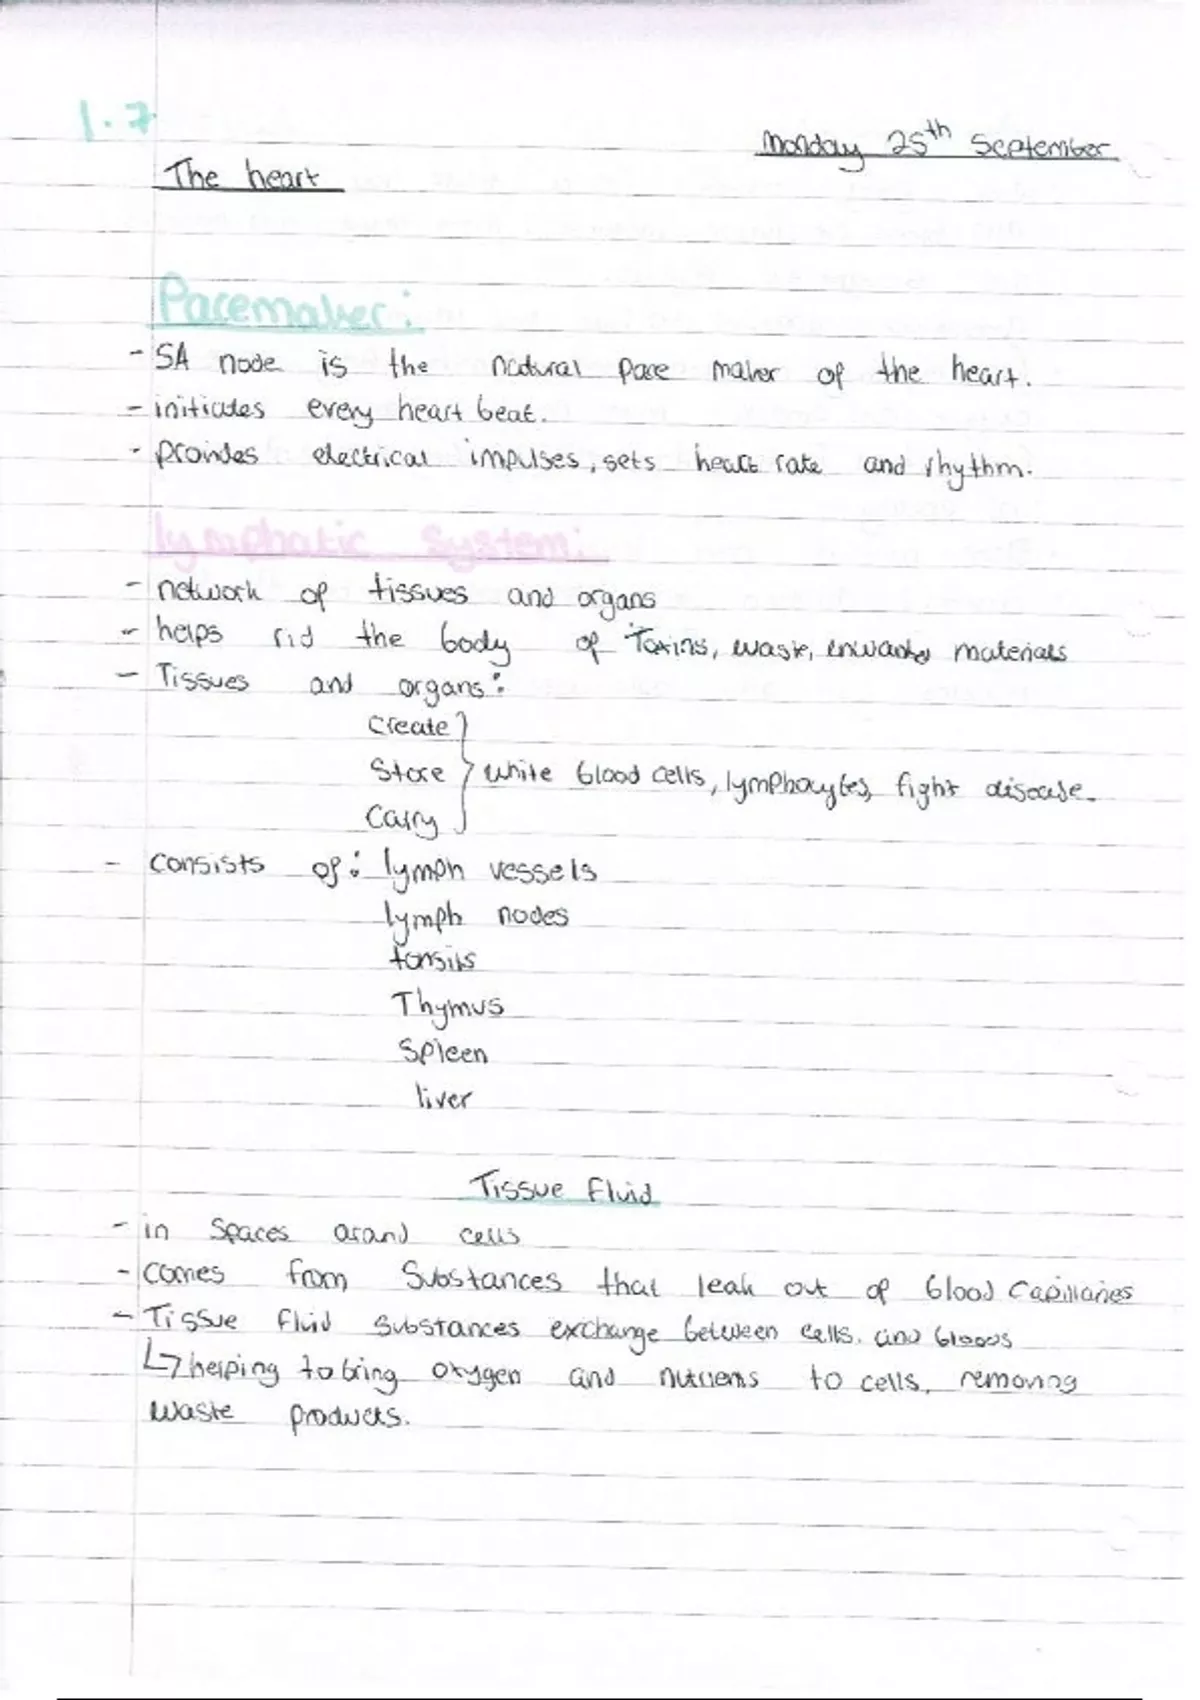 1.7
Monday 25th September
The heart
Pacemaker:
- SA node is the natural pace maker of the heart.
- initiates every heart beat.
- provides electrical impulses, sets heart rate and rhythm.
lymphatic system:
- network of tissues and organs
- helps rid the body of Toxins, waste, unwanted materials
- Tissues and organs:
Create
Store } white blood cells, lymphocytes, fight disease.
Carry
- consists of: lymph vessels
lymph nodes
tonsils
Thymus
Spleen
liver
Tissue Fluid
- in spaces around cells
- comes from substances that leak out of blood capillaries
- Tissue fluid substances exchange between cells. and bloods
↳ helping to bring oxygen and nutrients to cells, removing
waste products.